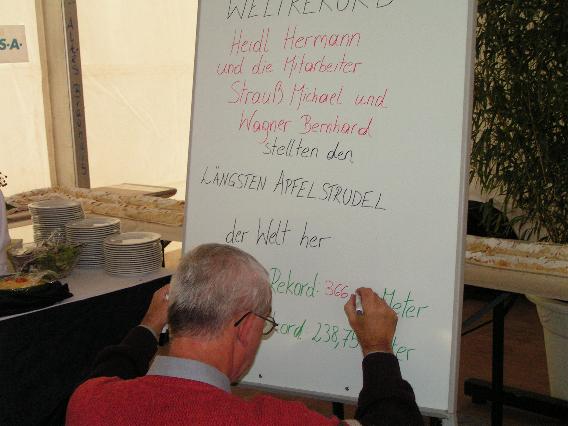 S.A.
WELTREKORD
Heidl Hermann
und die Mitarbeiter
Strauß Michael und
Wagner Bernhard
stellten den
LÄNGSTEN APFELSTRUDEL
der Welt her
Rekord: 366 Meter
238,75